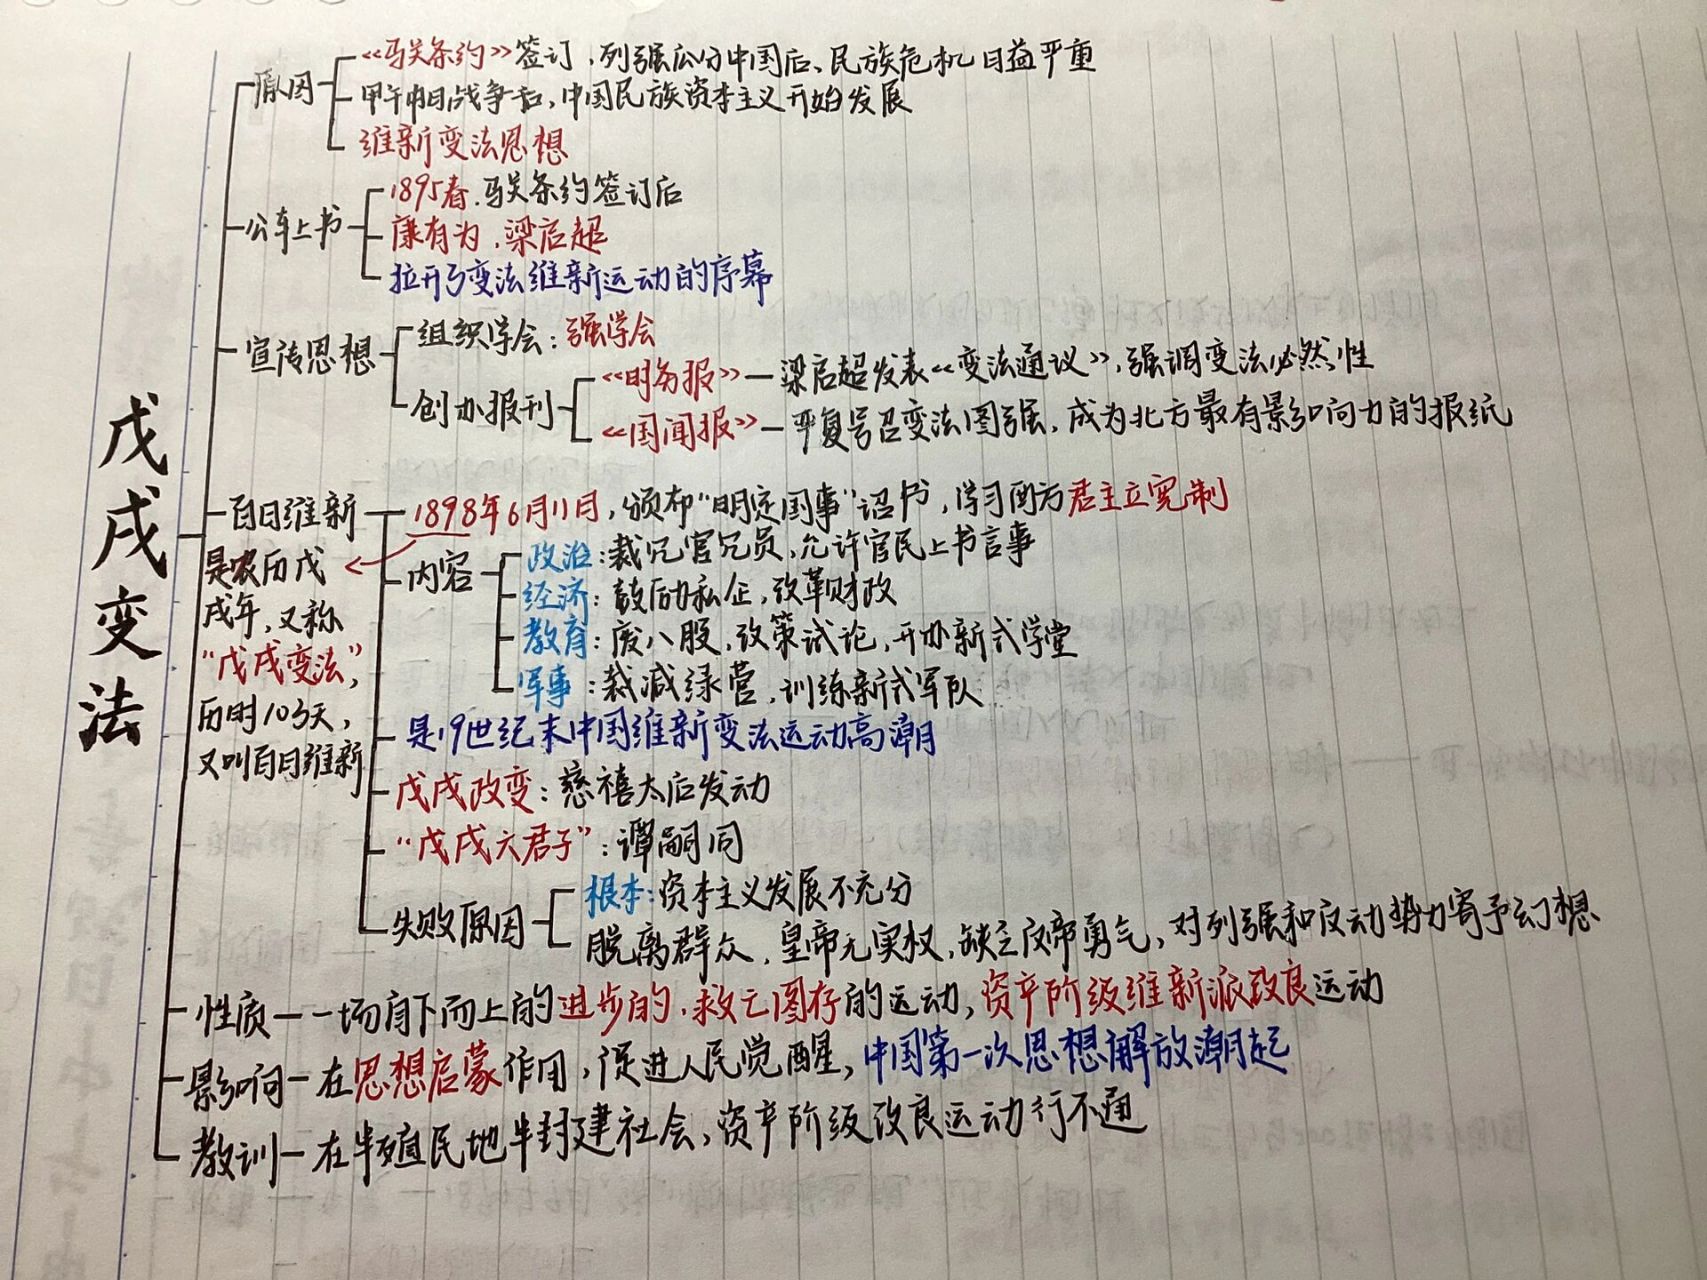 戊戌变法
原因
《马关条约》签订,列强瓜分中国后、民族危机日益严重
甲午中日战争后,中国民族资本主义开始发展
维新变法思想
公车上书
1895春.马关条约签订后
康有为,梁启超
拉开了变法维新运动的序幕
宣传思想
组织学会:强学会
创办报刊
《时务报》—梁启超发表《变法通议》,强调变法必然性
《国闻报》—严复号召变法图强,成为北方最有影响力的报纸
百日维新
1898年6月11日,颁布“明定国事”诏书,学习西方君主立宪制
是农历戊
戌年,又称
“戊戌变法”,
历时103天,
又叫百日维新
内容
政治:裁冗官冗员,允许官民上书言事
经济:鼓励私企,改革财政
教育:废八股,改策试论,开办新式学堂
军事:裁减绿营,训练新式军队
是19世纪末中国维新变法运动高潮
戊戌政变:慈禧太后发动
“戊戌六君子”:谭嗣同
失败原因
根本:资本主义发展不充分
脱离群众,皇帝无实权,缺乏反帝勇气,对列强和反动势力寄予幻想
性质—一场自下而上的进步的,救亡图存的运动,资产阶级维新派改良运动
影响—在思想启蒙作用,促进人民觉醒,中国第一次思想解放潮起
教训—在半殖民地半封建社会,资产阶级改良运动行不通